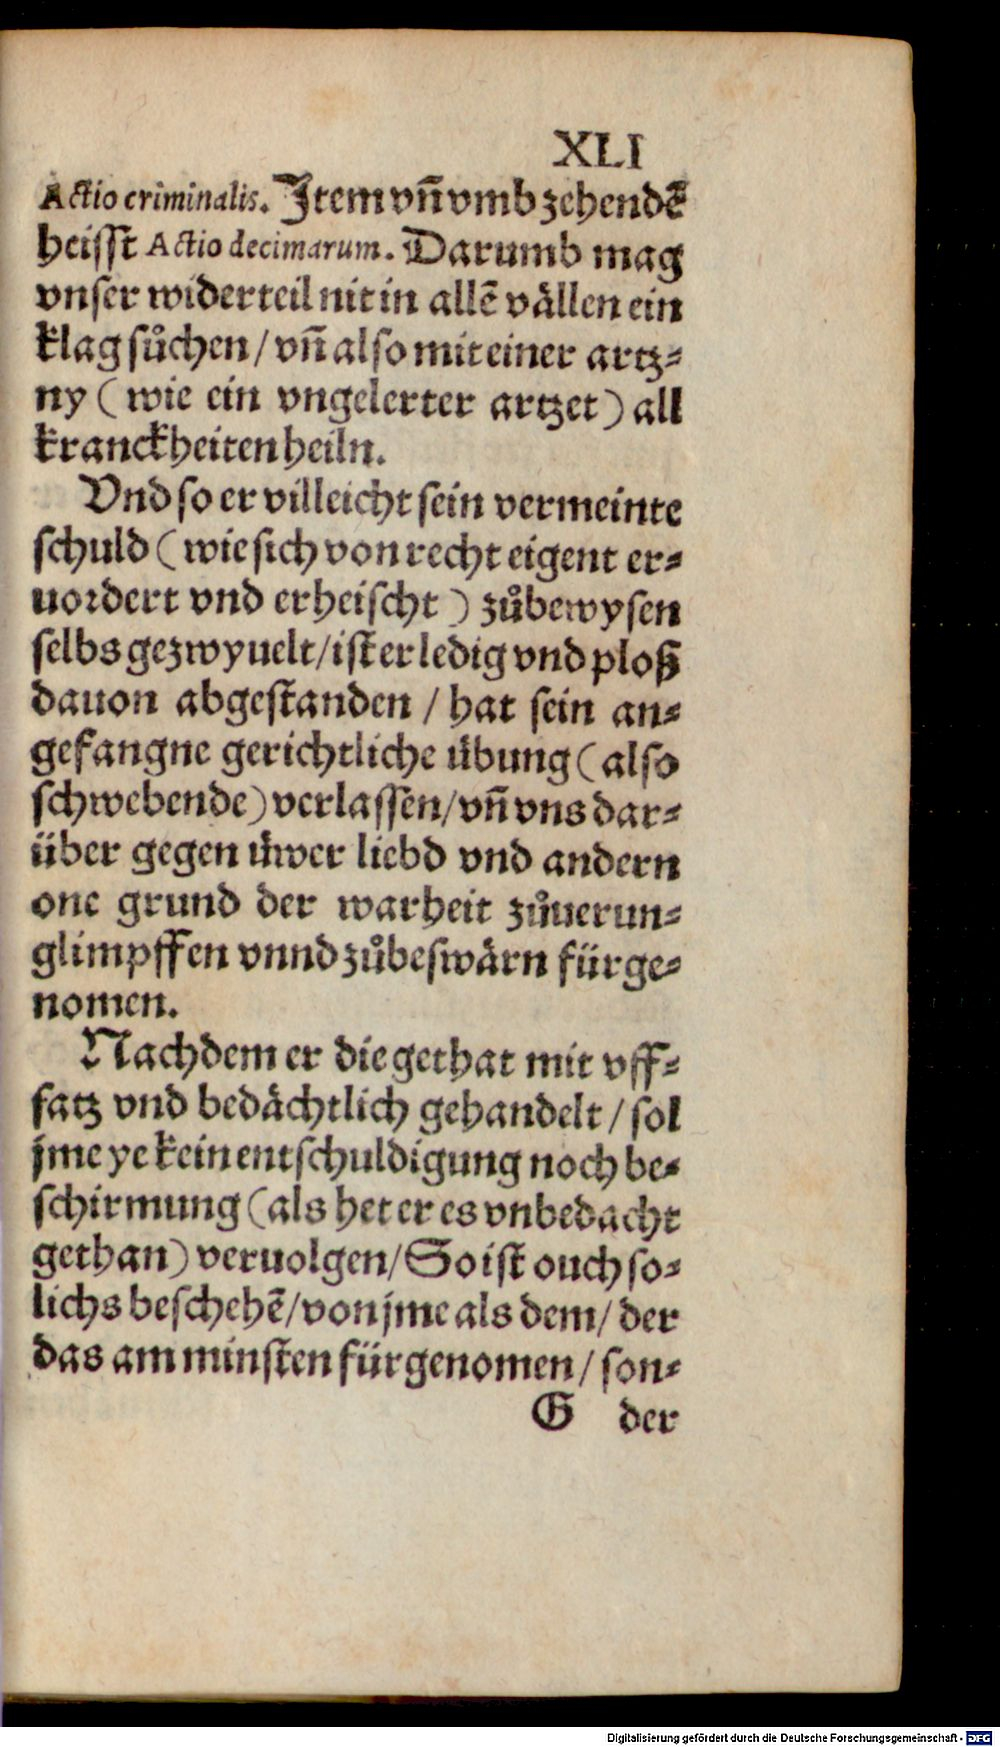 XLI
Actio criminalis. Item vñ vmb zehendẽ
heisst Actio decimarum. Darumb mag
vnser widerteil nit in allẽ vällen ein
klag sůchen / vñ also mit einer artz⸗
ny ( wie ein vngelerter artzet ) all
kranckheiten heiln.
Vnd so er villeicht sein vermeinte
schuld ( wie sich von recht eigent er⸗
uordert vnd erheischt ) zůbewysen
selbs gezwyuelt / ist er ledig vnd ploß
dauon abgestanden / hat sein an⸗
gefangne gerichtliche übung ( also
schwebende ) verlassen / vñ vns dar⸗
über gegen üwer liebd vnd andern
one grund der warheit zůuerun⸗
glimpffen vnnd zůbeswärn fürge⸗
nomen.
Nachdem er die gethat mit vff⸗
satz vnd bedächtlich gehandelt / sol
jme ye kein entschuldigung noch be⸗
schirmung ( als het er es vnbedacht
gethan ) veruolgen / So ist ouch so⸗
lichs beschehẽ / von jme als dem / der
das am minsten fürgenomen / son⸗
G der
Digitalisierung gefördert durch die Deutsche Forschungsgemeinschaft - DFG